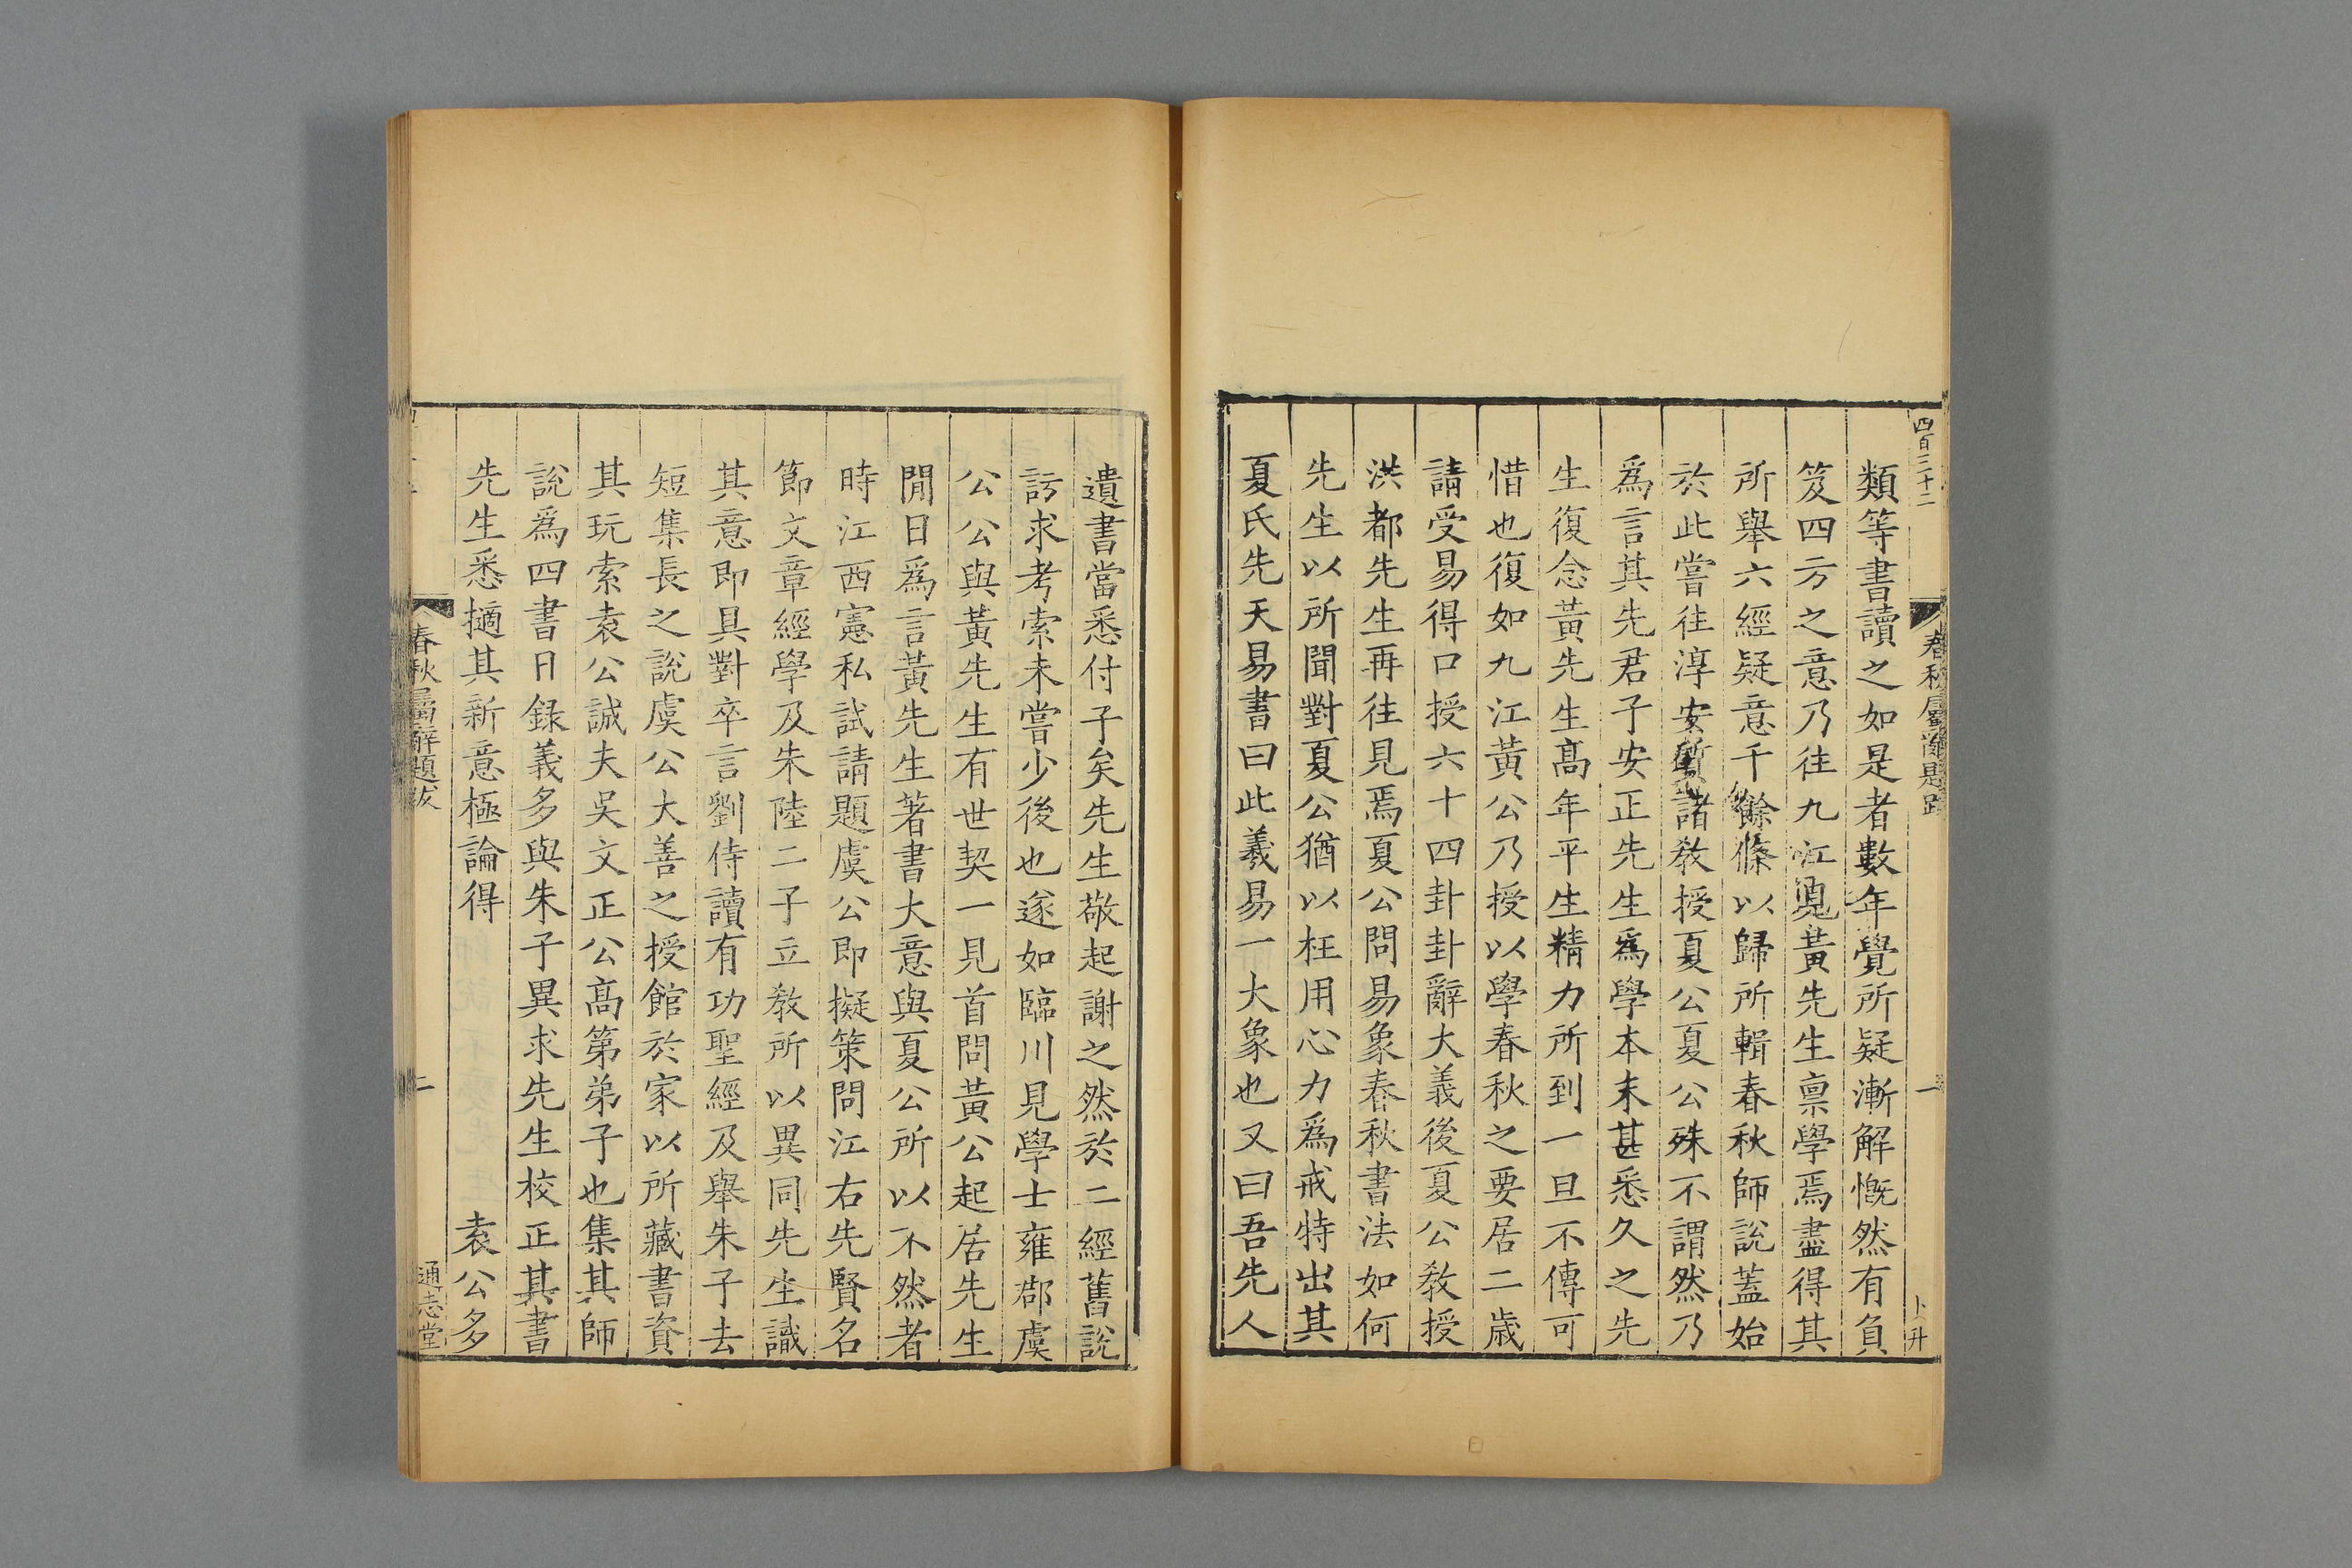 四百三十二
一
卜升
類等書讀之如是者數年覺所疑漸解慨然有負
笈四方之意乃往九江見黃先生禀學焉盡得其
所舉六經疑意千餘條以歸所輯春秋師說蓋始
於此嘗往淳安質諸教授夏公夏公殊不謂然乃
爲言其先君子安正先生爲學本末甚悉久之先
生復念黃先生高年平生精力所到一旦不傳可
惜也復如九江黃公乃授以學春秋之要居二歲
請受易得口授六十四卦卦辭大義後夏公教授
洪都先生再往見焉夏公問易象春秋書法如何
先生以所聞對夏公猶以枉用心力爲戒特出其
夏氏先天易書曰此羲易一大象也又曰吾先人
遺書當悉付子矣先生敬起謝之然於二經舊說
訪求考索未嘗少後也遂如臨川見學士雍郡虞
公公與黃先生有世契一見首問黃公起居先生
閒日爲言黃先生著書大意與夏公所以不然者
時江西憲私試請題虞公即擬策問江右先賢名
節文章經學及朱陸二子立教所以異同先生識
其意即具對卒言劉侍讀有功聖經及舉朱子去
短集長之說虞公大善之授館於家以所藏書資
其玩索袁公誠夫吳文正公高第弟子也集其師
說爲四書日錄義多與朱子異求先生校正其書
先生悉擿其新意極論得　　　　　袁公多
春秋屬辭題跋
二
通志堂